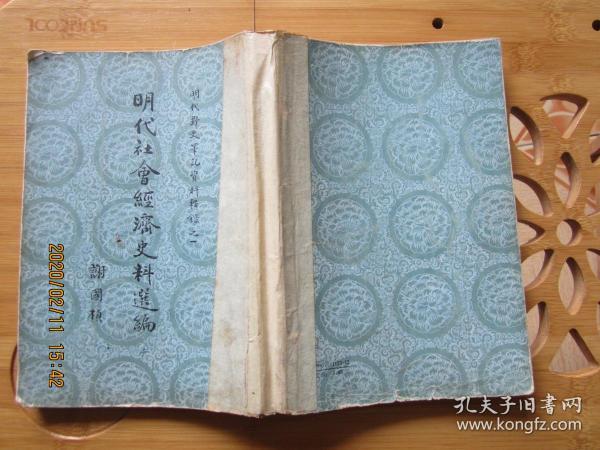 明代野史筆記資料輯錄之一
明代社會經濟史料選編
謝國楨
2020/02/11 15:42
孔夫子旧书网
www.kongfz.com